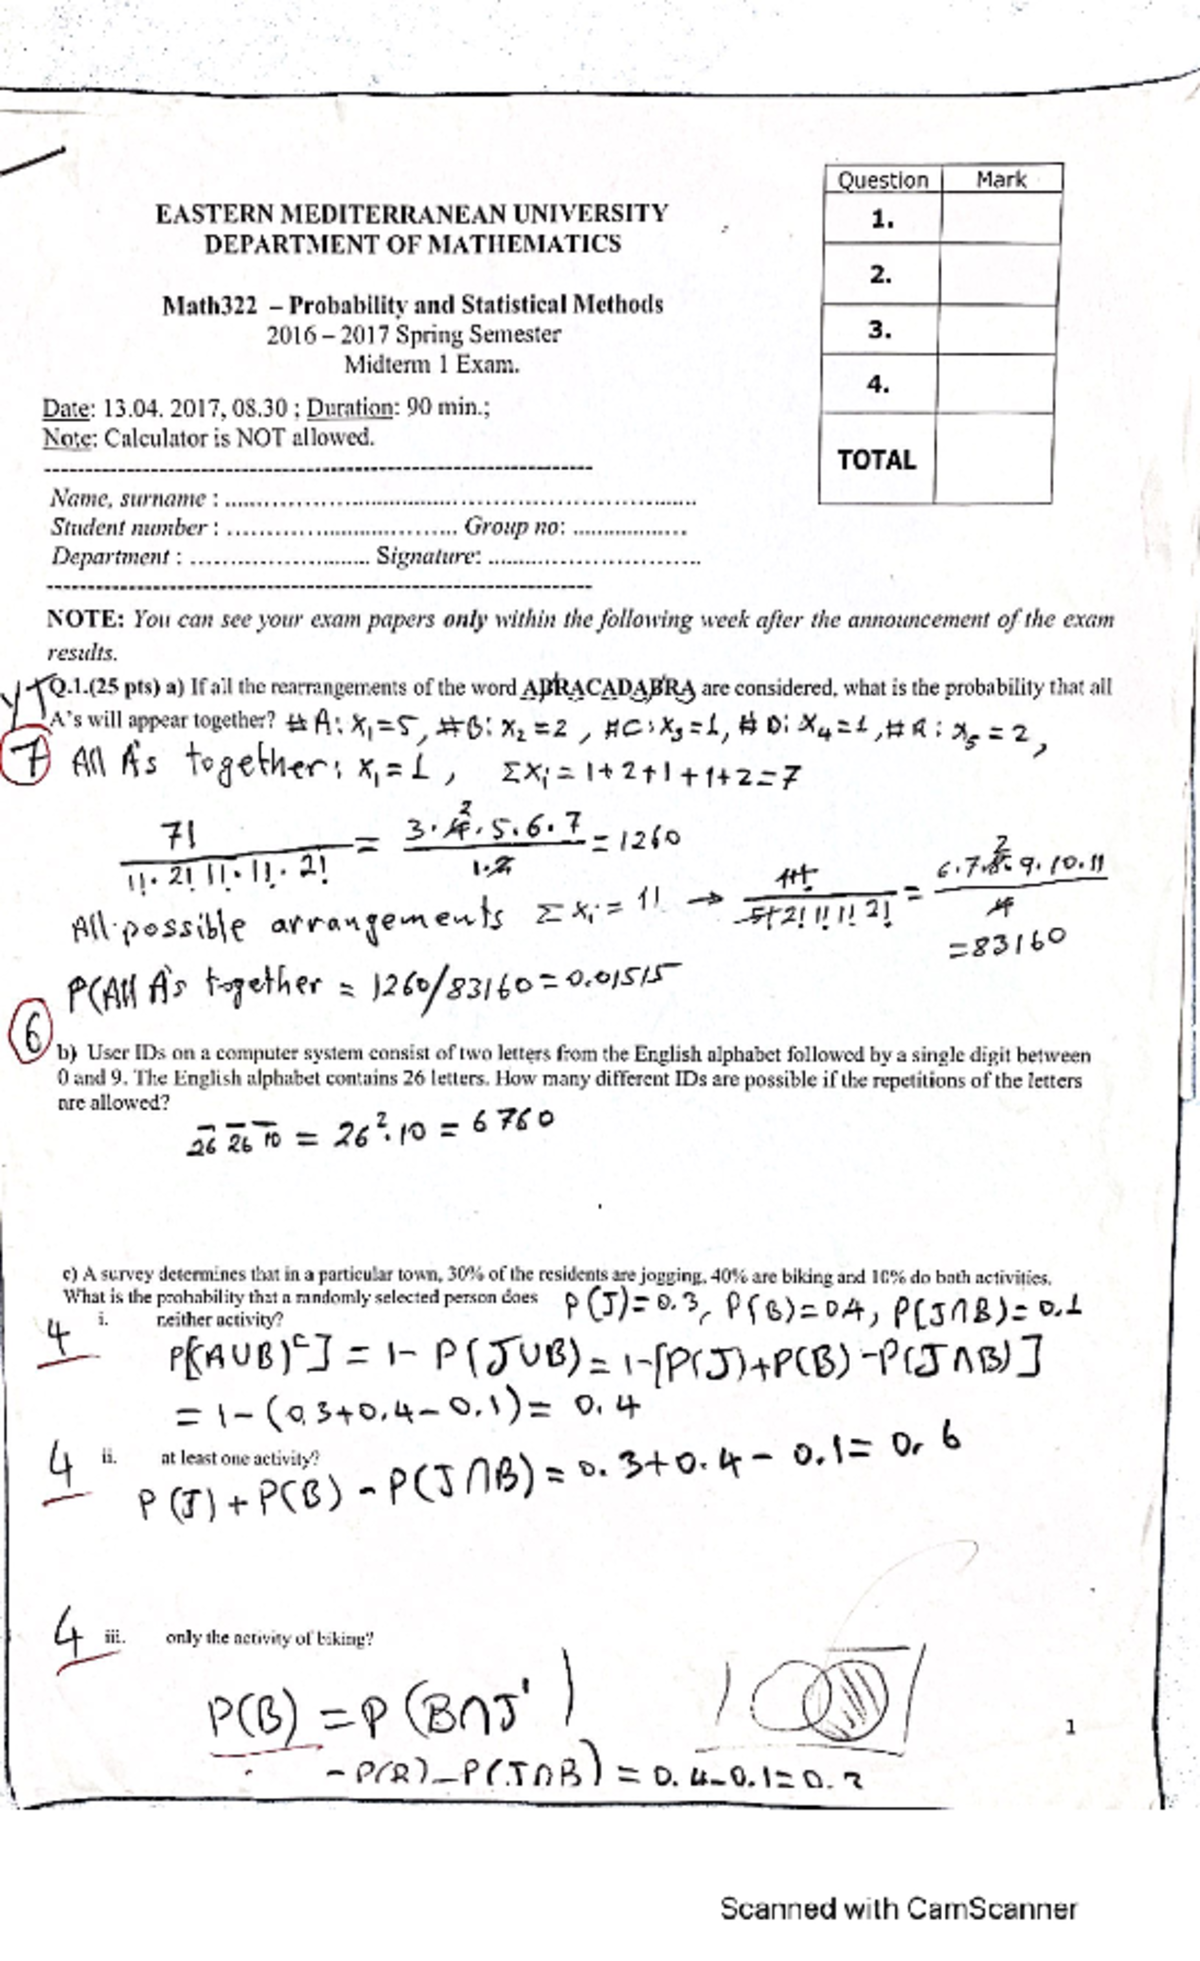 Question Mark
1.
2.
3.
4.
TOTAL
EASTERN MEDITERRANEAN UNIVERSITY
DEPARTMENT OF MATHEMATICS
Math322 – Probability and Statistical Methods
2016 – 2017 Spring Semester
Midterm 1 Exam.
Date: 13.04. 2017, 08.30 ; Duration: 90 min.;
Note: Calculator is NOT allowed.
Name, surname :
Student number : Group no:
Department : Signature:
NOTE: You can see your exam papers only within the following week after the announcement of the exam
results.
Q.1.(25 pts) a) If all the rearrangements of the word ABRACADABRA are considered, what is the probability that all
A's will appear together? #A: x₁=5, #B: x₂=2, #C: x₃=1, #D: x₄=1, #R: x₅=2,
7 All A's together: x₁=1, Σxᵢ=1+2+1+1+2=7
7! / 1!·2!1!·1!·2! = 3·4·5·6·7 / 1·2 = 1260
2
All possible arrangements Σxᵢ=11 → 11! / 5!2!1!1!2! = 6·7·8·9·10·11 / 4
2
=83160
P(All A's together = 1260/83160=0.01515
6
b) User IDs on a computer system consist of two letters from the English alphabet followed by a single digit between
0 and 9. The English alphabet contains 26 letters. How many different IDs are possible if the repetitions of the letters
are allowed?
26 26 10 = 26²·10 = 6760
c) A survey determines that in a particular town, 30% of the residents are jogging, 40% are biking and 10% do both activities.
What is the probability that a randomly selected person does P(J)=0.3, P(B)=0.4, P(J∩B)=0.1
4 i. neither activity?
P[(A∪B)ᶜ] = 1- P(J∪B) = 1-[P(J)+P(B)-P(J∩B)]
= 1-(0.3+0.4-0.1)= 0.4
4 ii. at least one activity?
P(J)+P(B)-P(J∩B)=0.3+0.4-0.1=0.6
4 iii. only the activity of biking?
P(B) = P(B∩J')
1
=P(B)-P(J∩B)=0.4-0.1=0.3
Scanned with CamScanner